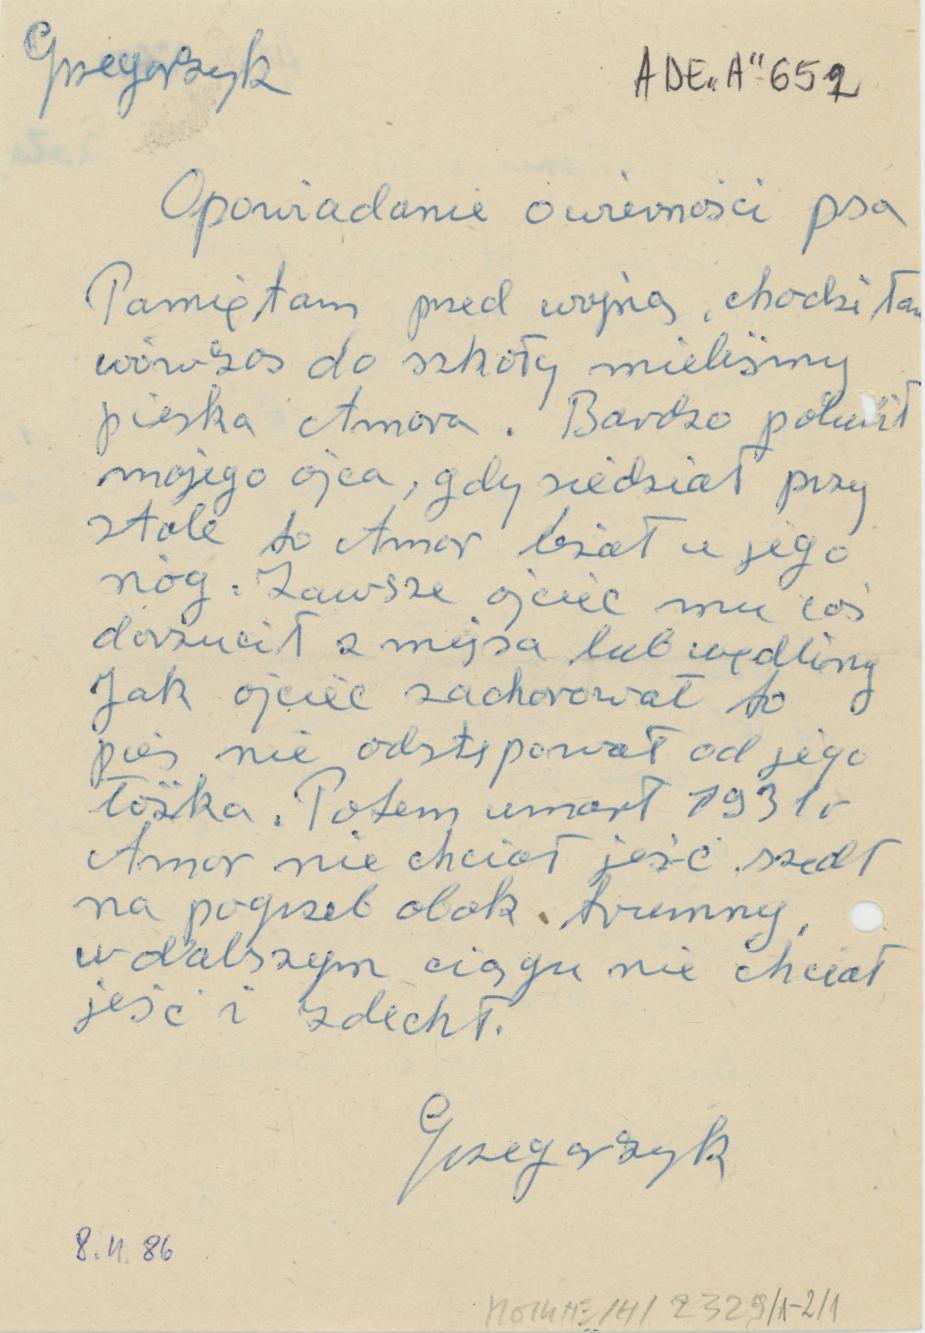 Grzegorzyk
ADE„A"652
Opowiadanie o wierności psa
Pamiętam przed wojną, chodziłam
wówczas do szkoły mieliśmy
pieska Amora. Bardzo polubił
mojego ojca, gdy siedział przy
stole to Amor leżał u jego
nóg. Zawsze ojciec mu coś
dorzucił z mięsa lub wędliny
Jak ojciec zachorował to
pies nie odstępował od jego
łóżka. Potem umarł 1931r
Amor nie chciał jeść szedł
na pogrzeb obok trumny,
w dalszym ciągu nie chciał
jeść i zdechł.
Grzegorzyk
8.II.86
/H/ 2329/1-2/1